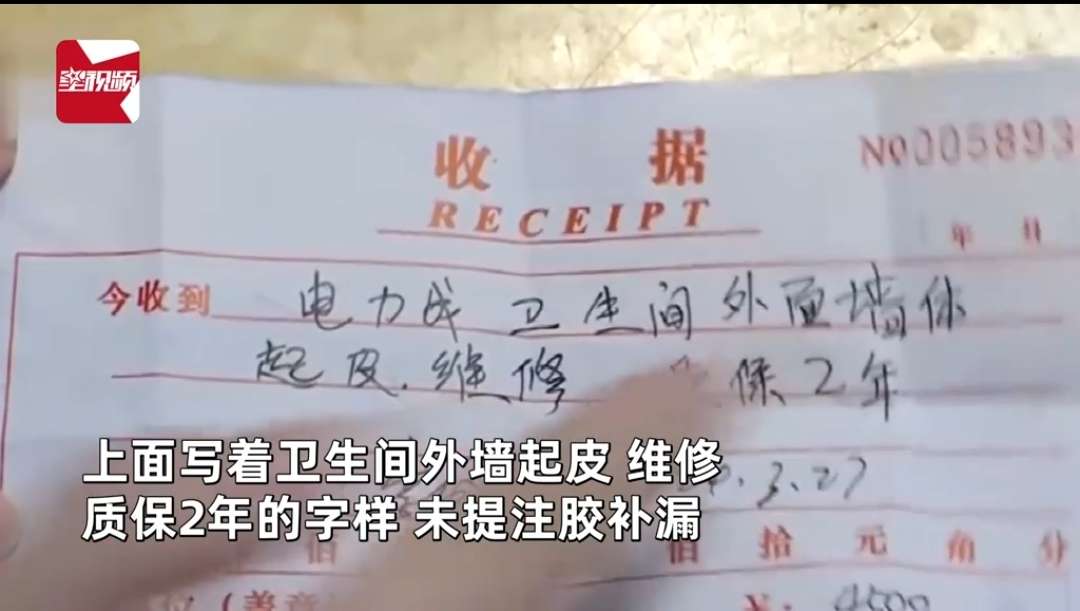 星视频
收据
No 005893
RECEIPT
年 月
今收到 电力成 卫生间外面墙体
起皮.维修 保2年
.3.27
佰 佰 拾 元 角 分
(盖章
¥: 4500
上面写着卫生间外墙起皮 维修
质保2年的字样 未提注胶补漏